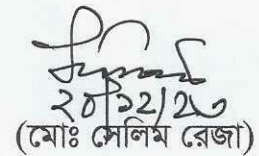 ২০/১২/২০
(মোঃ সেলিম রেজা)